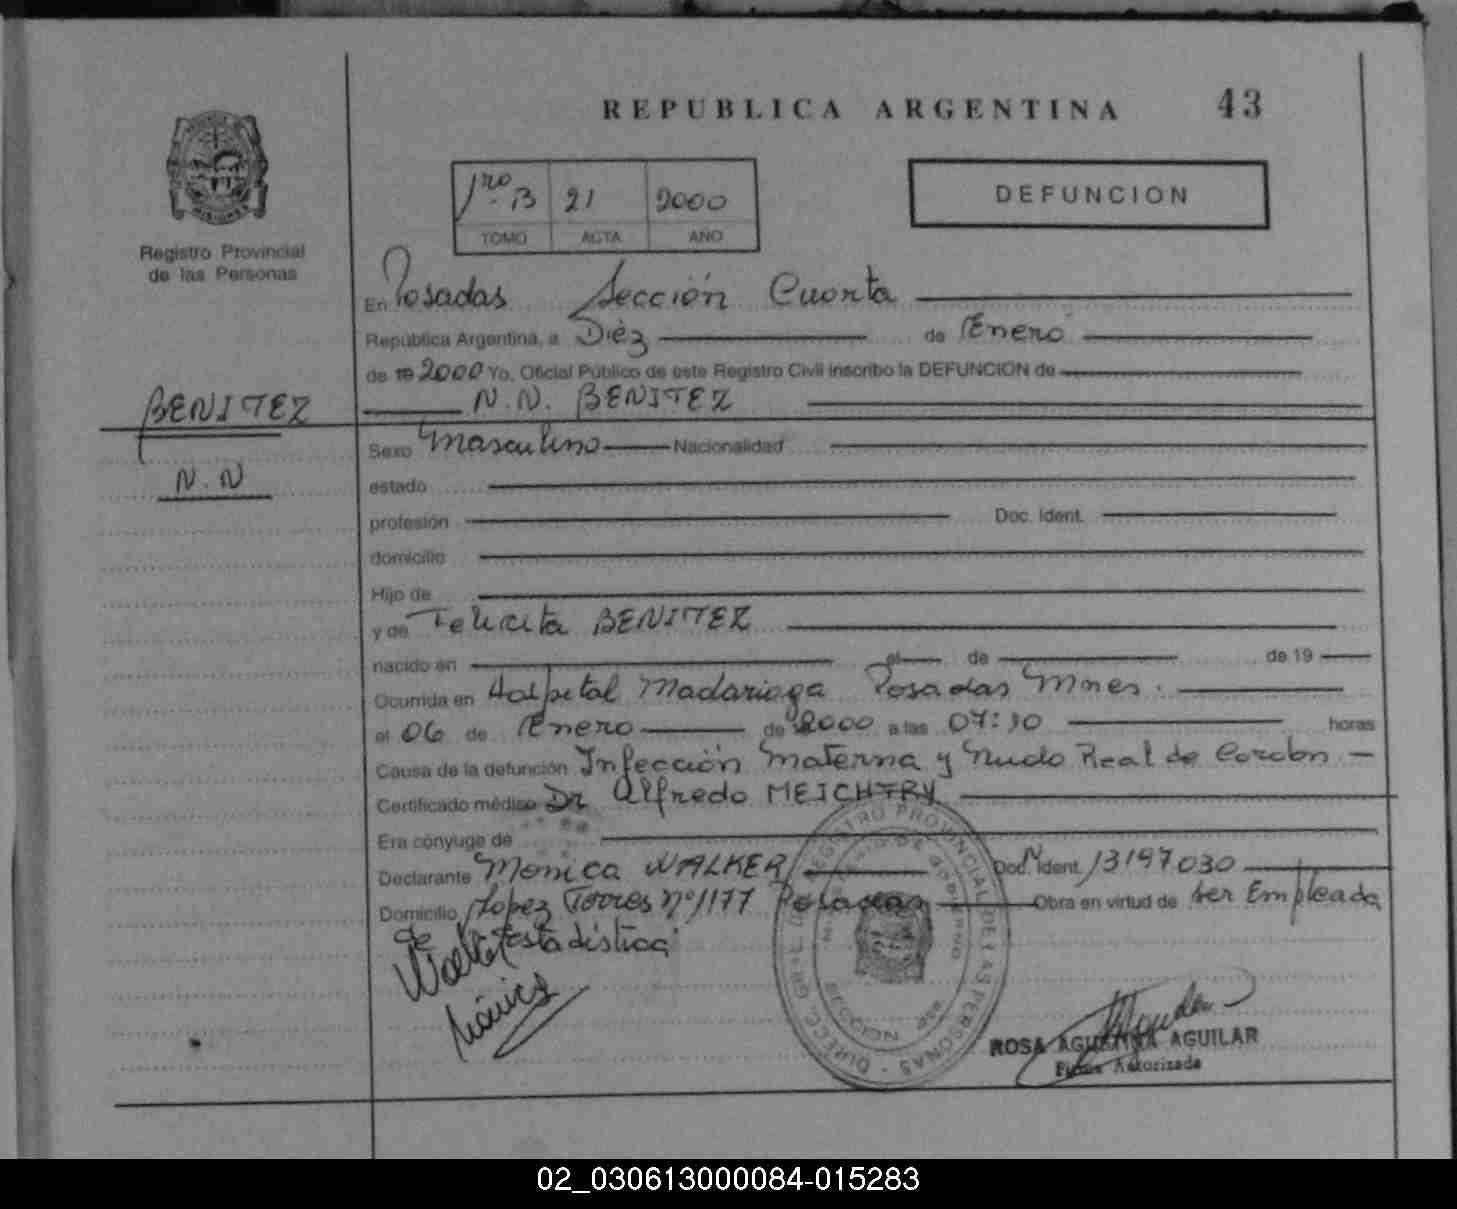 REPUBLICA ARGENTINA 43
1ro. B 21 2000
TOMO ACTA AÑO
DEFUNCION
Registro Provincial
de las Personas
En Posadas Sección Cuarta
República Argentina, a Diéz de Enero
de 19 2000 Yo, Oficial Público de este Registro Civil inscribo la DEFUNCION de
N.N. BENITEZ
BENITEZ
N.N
Sexo Masculino Nacionalidad
estado
profesión Doc. Ident.
domicilio
Hijo de
y de Felicita BENITEZ
nacido en el de de 19
Ocurrida en Hospital Madariaga Posadas Mnes.
el 06 de Enero de 2000 a las 07:30 horas
Causa de la defunción Infección Materna y Nudo Real de Cordon
Certificado médico Dr Alfredo MEICHTRY
Era cónyuge de
Declarante Monica WALKER Doc. Ident. 13197.030
Domicilio Lopez Torres nº 1177 Posadas Obra en virtud de ser Empleada
de Estadística
Walker
Mónica
DIRECC. GRAL. DEL REGISTRO PROVINCIAL DE LAS PERSONAS
MINISTERIO DE GOBIERNO
ROSA AGUSTINA AGUILAR
Firma Autorizada
02_030613000084-015283